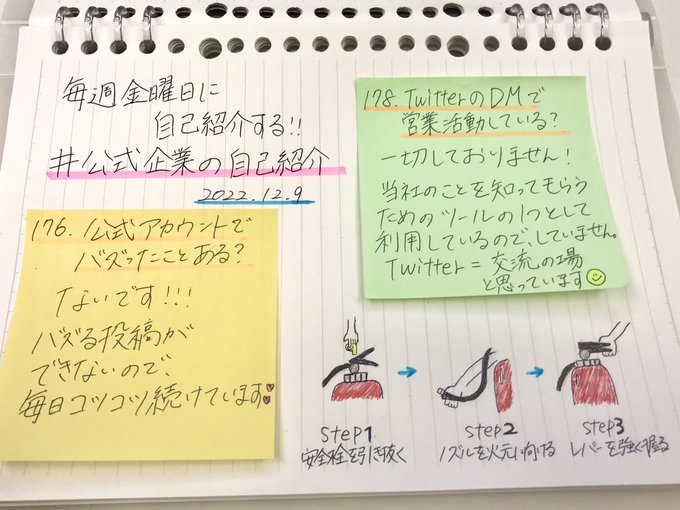 毎週金曜日に
自己紹介する!!
#公式企業の自己紹介
2022.12.9
176.公式アカウントで
バズったことある?
ないです!!!
バズる投稿が
できないので、
毎日コツコツ続けています
178.TwitterのDMで
営業活動している?
一切しておりません!
当社のことを知ってもらう
ためのツールの1つとして
利用しているので、していません。
Twitter=交流の場
と思っています
step1
安全栓を引き抜く
step2
ノズルを火元に向ける
step3
レバーを強く握る